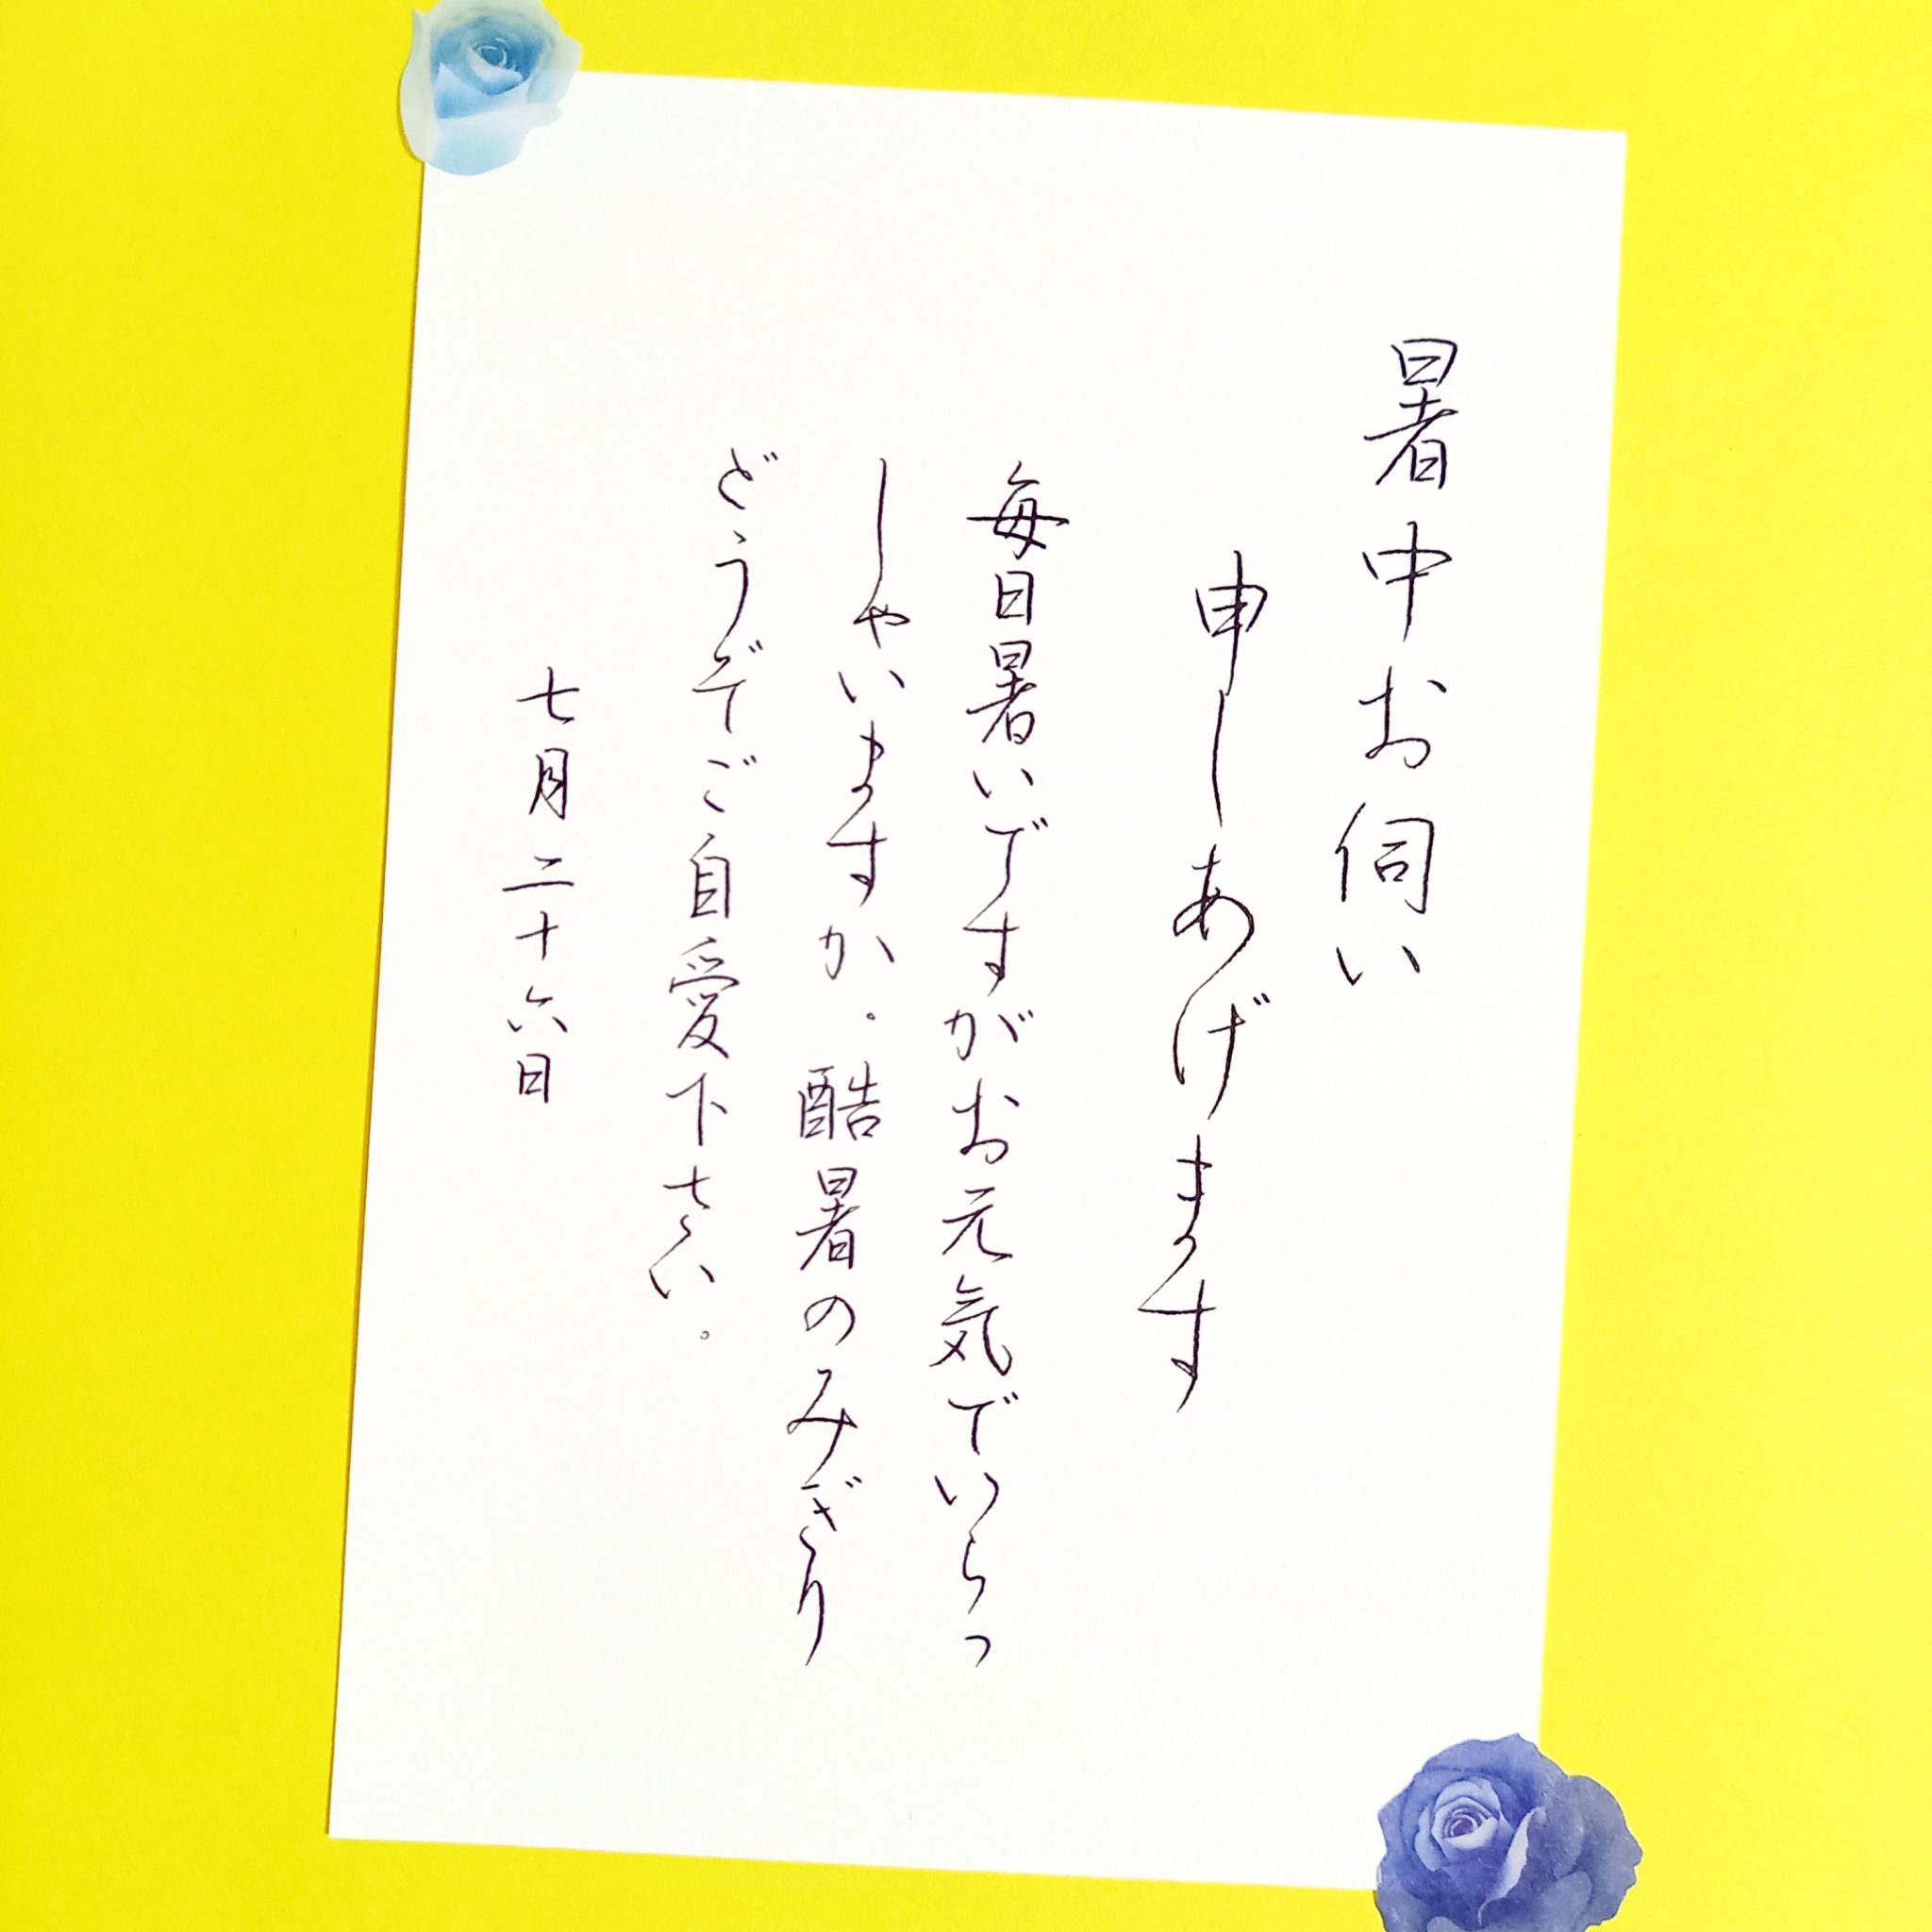 暑中お伺い
申しあげます
毎日暑いですがお元気でいらっ
しゃいますか。酷暑のみぎり
どうぞご自愛下さい。
七月二十六日